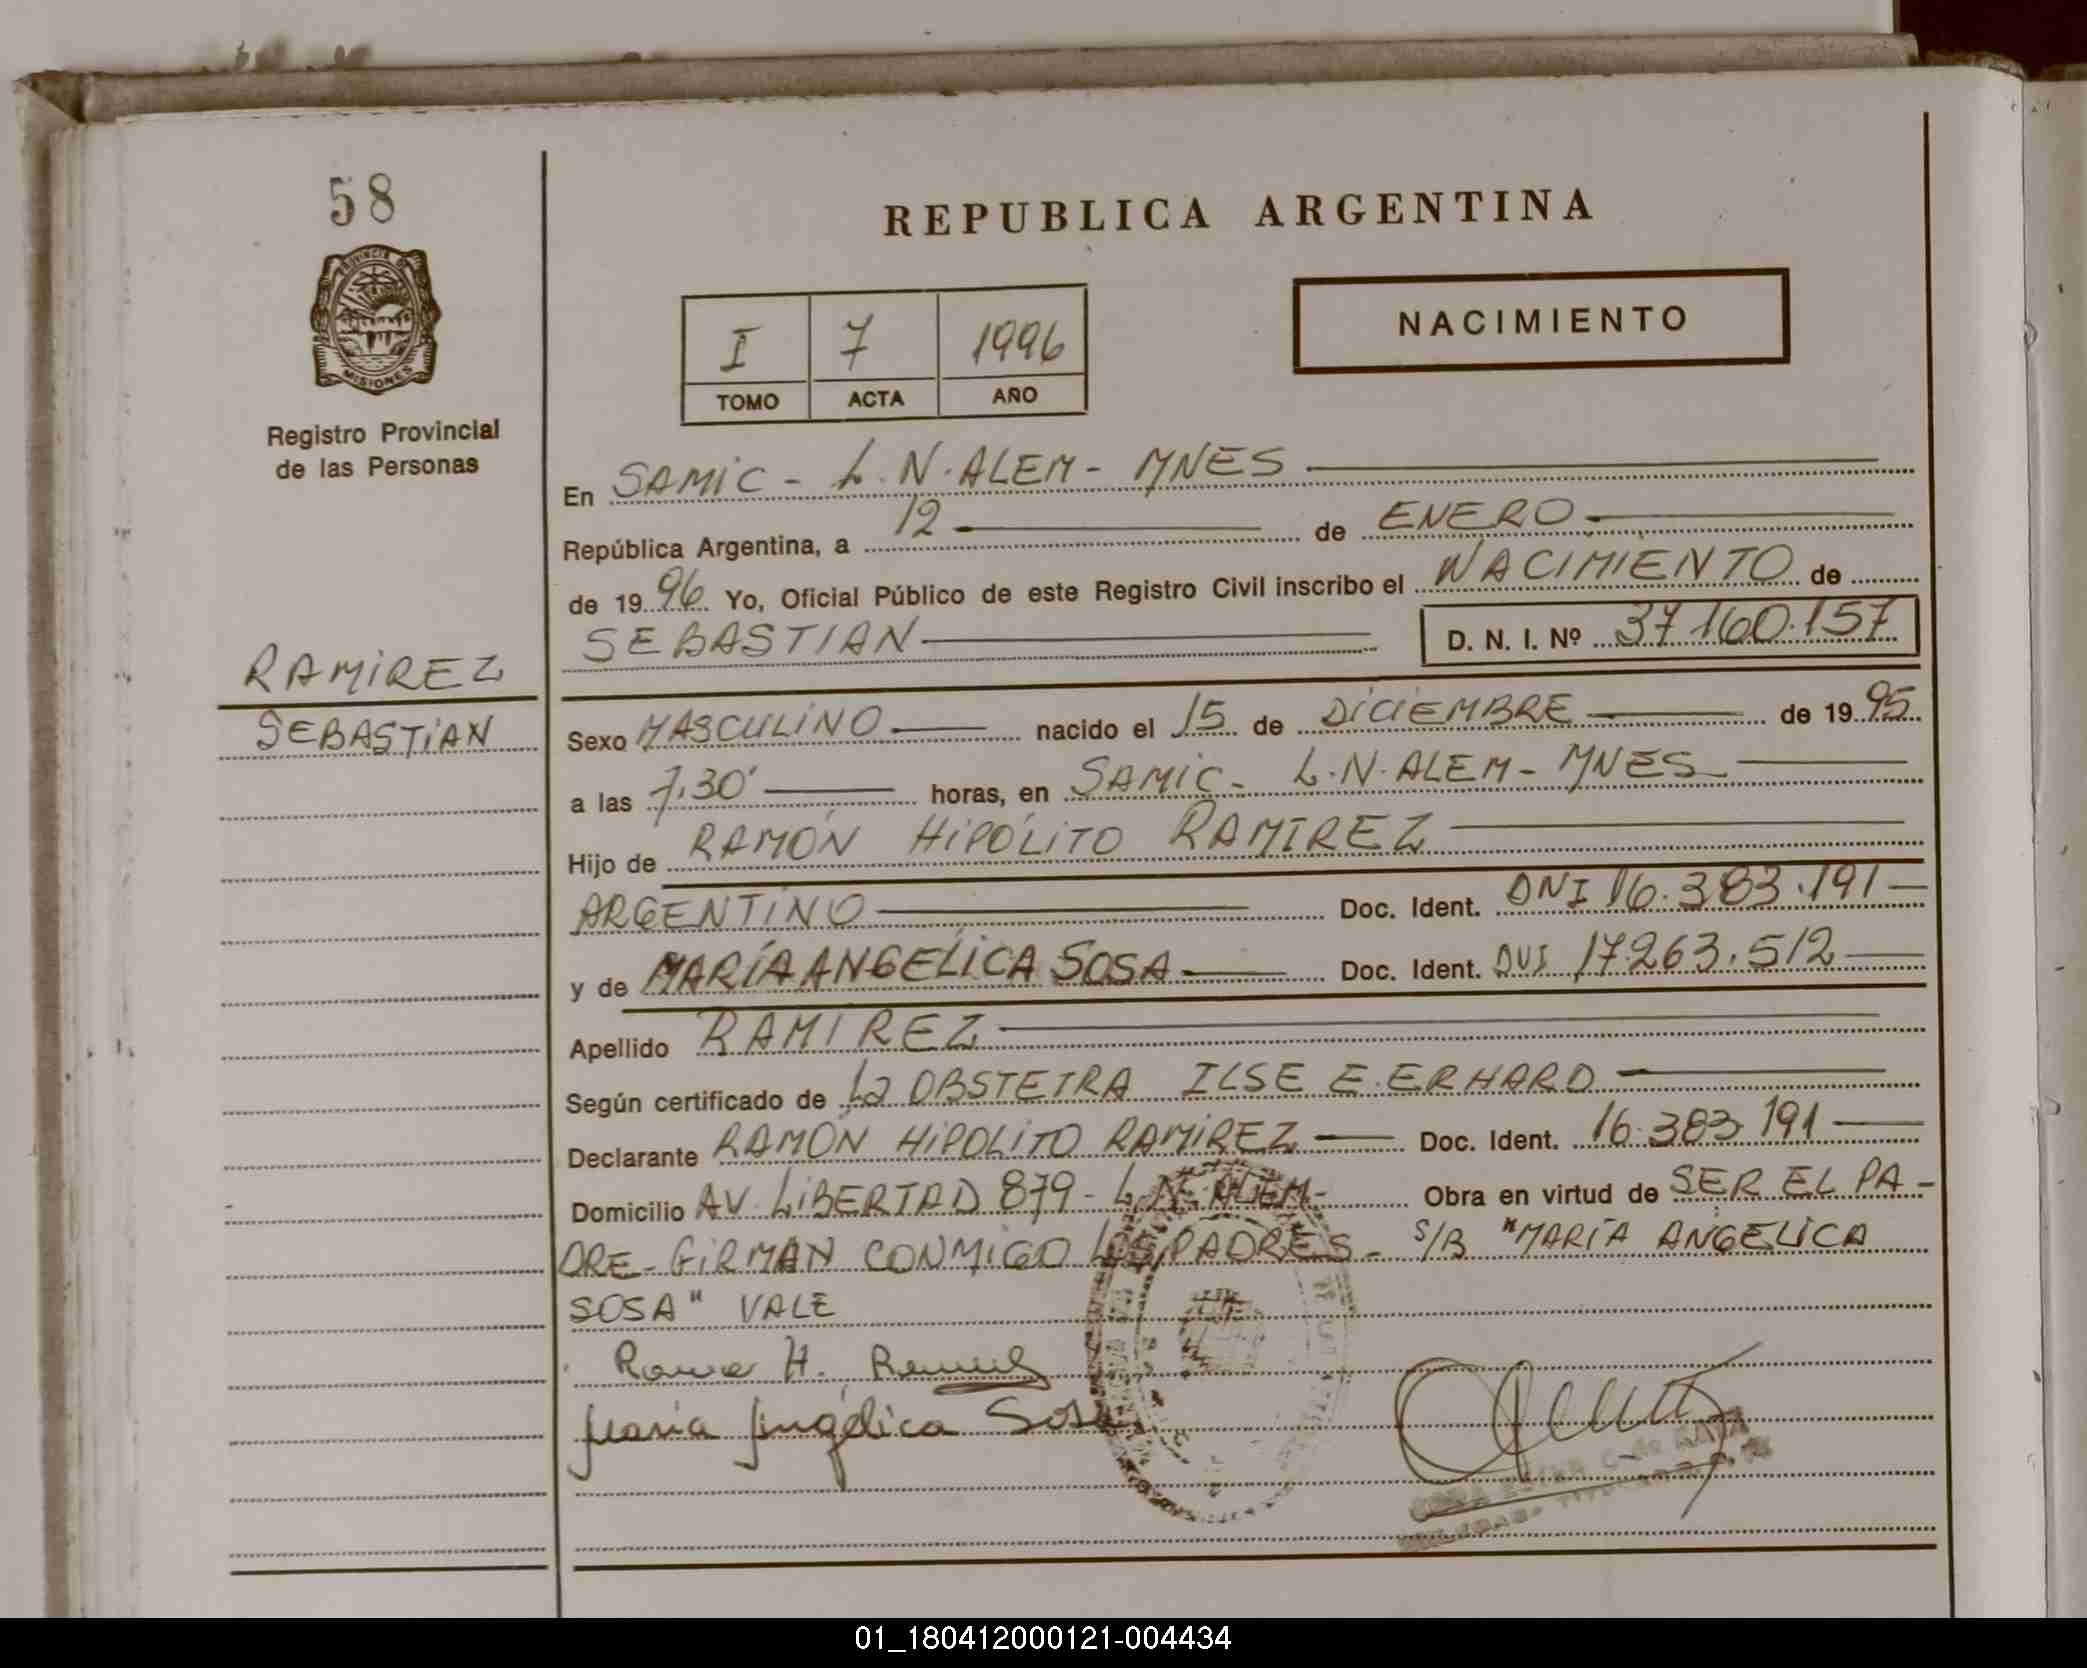 58
REPUBLICA ARGENTINA
PROVINCIA DE
MISIONES
Registro Provincial
de las Personas
I 7 1996
TOMO ACTA AÑO
NACIMIENTO
En SAMIC - L.N. ALEM - MNES
República Argentina, a 12 de ENERO
de 1996 Yo, Oficial Público de este Registro Civil inscribo el NACIMIENTO de
SEBASTIAN D. N. I. Nº 37.160.157
RAMIREZ
SEBASTIAN
Sexo MASCULINO nacido el 15 de DICIEMBRE de 1995
a las 7.30' horas, en SAMIC - L.N. ALEM - MNES
Hijo de RAMÓN HIPÓLITO RAMIREZ
ARGENTINO Doc. Ident. DNI 16.383.191
y de MARÍA ANGÉLICA SOSA Doc. Ident. DNI 17.263.512
Apellido RAMIREZ
Según certificado de La OBSTETRA ILSE E. ERHARD
Declarante RAMÓN HIPOLITO RAMIREZ Doc. Ident. 16.383.191
Domicilio AV. LIBERTAD 879 - L.N. ALEM - Obra en virtud de SER EL PA-
DRE - FIRMAN CONMIGO LOS PADRES - S/B "MARÍA ANGELICA
SOSA" VALE
Ramon H. Ramirez
Maria Angélica Sosa
01_180412000121-004434